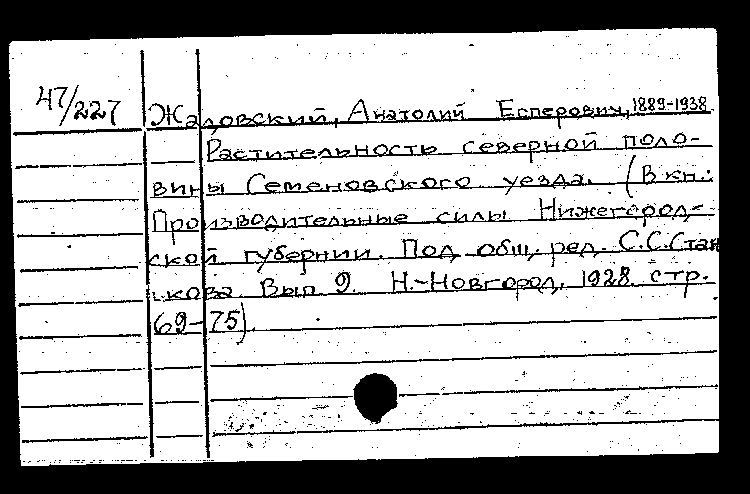 47/227
Жадовский, Анатолий Есперович, 1889-1938.
Растительность северной поло-
вины Семеновского уезда. (В кн.:
Производительные силы Нижегород-
ской губернии. Под общ. ред. С.С.Стан
кова Вып 9. Н.-Новгород, 1928 стр.
69-75).